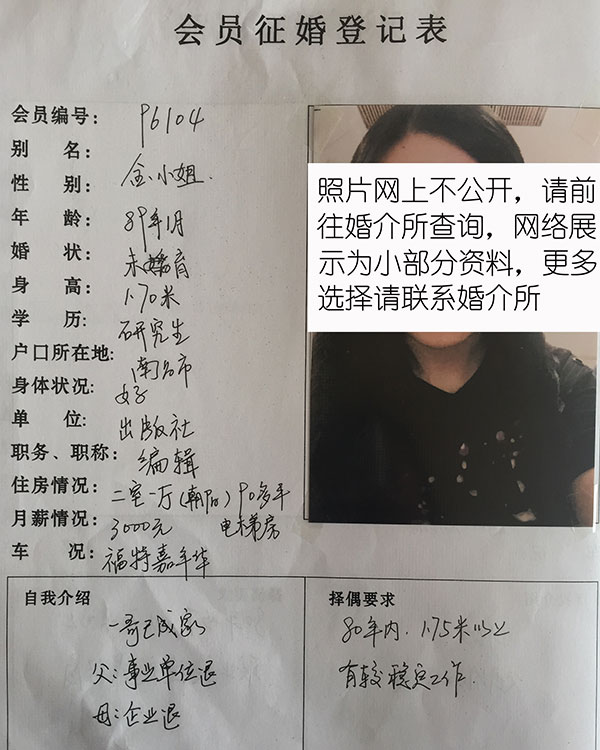 会员征婚登记表
会员编号： 96104
别　名：
性　别： 金小姐.
年　龄： 89年1月
婚　状： 未婚育
身　高： 1.70米
学　历： 研究生
户口所在地： 南昌市
身体状况： 好
单　位： 出版社
职务、职称： 编辑
住房情况： 二室一厅(朝阳) 90多平
月薪情况： 3000元 电梯房
车　况： 福特嘉年华
照片网上不公开，请前
往婚介所查询，网络展
示为小部分资料，更多
选择请联系婚介所
自我介绍
一哥已成家
父：事业单位退
母：企业退
择偶要求
80年内. 1.75米以上
有较稳定工作.